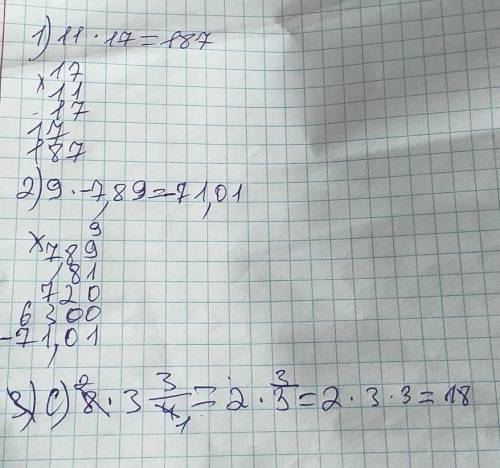 1) 11 · 17 = 187
× 17
11
17
17
187
2) 9 · -7,89 = -71,01
9
× 789
81
720
6300
-71,01
3) 8 · 3 3/4 = 2 · 3/3 = 2 · 3 · 3 = 18